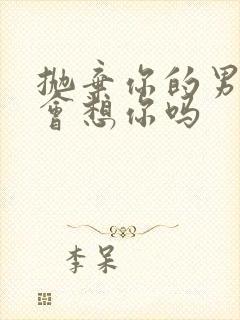 抛弃你的男
会想你吗
李呆